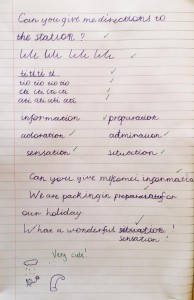 Can you give me directions to
the station?
titi titi ti
tio tio tio tio
cia cia cia cia
ati ati ati ati
information preparation
adoration admiration
sensation situation
Can you give me some information
We are packing in preparation for
our holiday
What a wonderful situation!
sensation
Very cute!